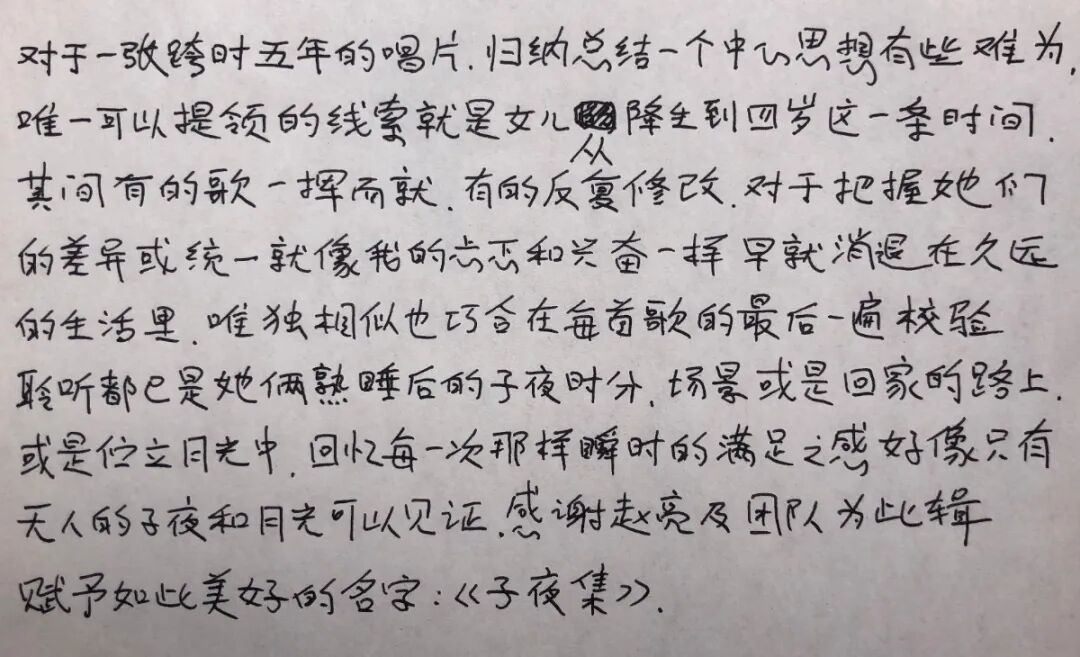 对于一张跨时五年的唱片.归纳总结一个中心思想有些难为,
唯一可以提领的线索就是女儿从降生到四岁这一条时间.
其间有的歌一挥而就.有的反复修改.对于把握她们
的差异或统一就像我的忐忑和兴奋一样早就消退在久远
的生活里.唯独相似也巧合在每首歌的最后一遍校验
聆听都已是她俩熟睡后的子夜时分.场景或是回家的路上.
或是伫立月光中.回忆每一次那样瞬时的满足之感好像只有
无人的子夜和月光可以见证.感谢赵亮及团队为此辑
赋予如此美好的名字:《子夜集》.